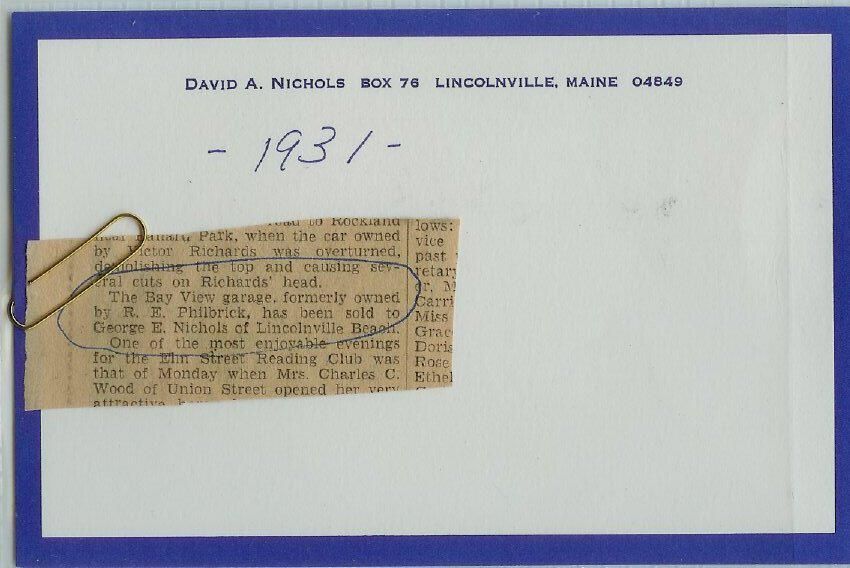 DAVID A. NICHOLS BOX 76 LINCOLNVILLE, MAINE 04849
- 1931 -
road to Rockland
Park, when the car owned
by Victor Richards was overturned,
demolishing the top and causing sev-
eral cuts on Richards' head.
The Bay View garage, formerly owned
by R. E. Philbrick, has been sold to
George E. Nichols of Lincolnville Beach.
One of the most enjoyable evenings
for the Elm Street Reading Club was
that of Monday when Mrs. Charles C.
Wood of Union Street opened her very
attractive
lows:
vice
past
retary
er, M
Carri
Miss
Grac
Doris
Rose
Ethel